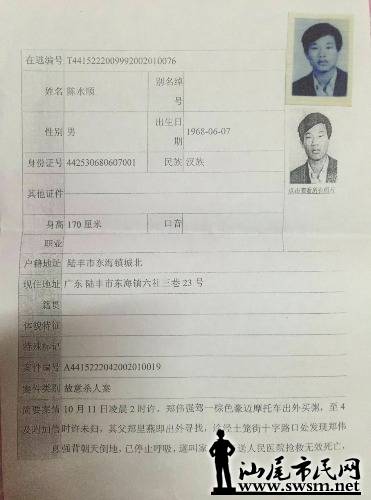 在逃编号 T4415222009992002010076
姓名 陈水顺 别名绰号
性别 男 出生日期 1968-06-07
身份证号 442530680607001 民族 汉族
其他证件
身高 170 厘米 口音
职业
户籍地址 陆丰市东海镇城北
现住地址 广东 陆丰市东海镇六社三巷 23 号
籍贯
体貌特征
特殊标记
案件编号 A4415222042002010019
案件类别 故意杀人案
简要案情 10 月 11 日凌晨 2 时许，郑伟强驾一棕色豪迈摩托车出外买粥，至 4
及附加信 时许未归，其父郑里燕即出外寻找，途经土笼街十字路口处发现郑伟
息 强背朝天倒地，已停止呼吸，遂叫家 送人民医院抢救无效死亡，
汕尾市民网
www.swsm.net